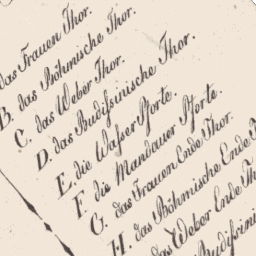 das Frauen Thor.
B. das Böhmische Thor.
C. das Weber Thor.
D. das Budißinische Thor.
E. die Waßer Pforte.
F. die Mandauer Pforte.
G. das Frauen Ende Thor.
H. das Böhmische Ende
das Weber Ende Th